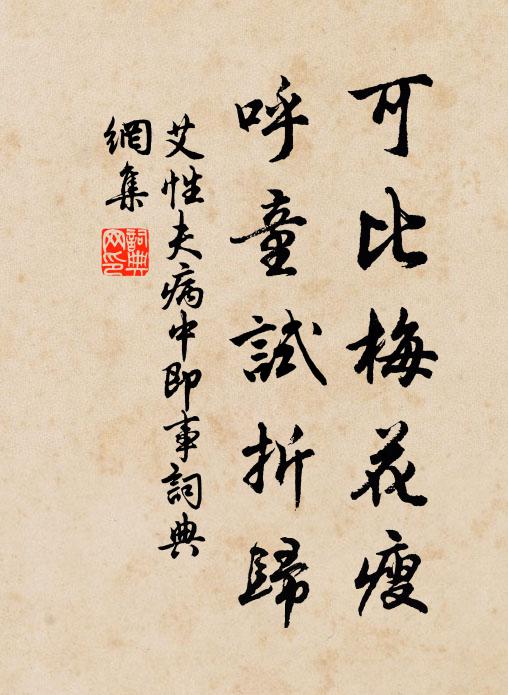 可比梅花瘦
呼童試折歸
艾性夫病中即事詞典
網集
詞典
网印